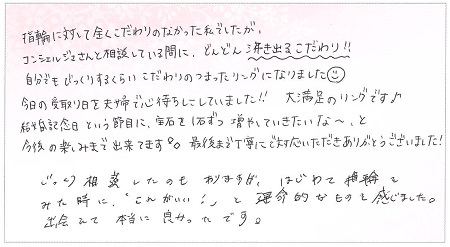 指輪に対して全くこだわりのなかった私でしたが、
コンシェルジュさんと相談している間に、どんどん湧き出るこだわり!!
自分でもびっくりするくらいこだわりのつまったリングになりました
今日の受取り日を夫婦で心待ちにしていました!! 大満足のリングです♪
結婚記念日という節目に、宝石を1石ずつ増やしていきたいな～、と
今後の楽しみまで出来てます。最後まで丁寧にご対応いただきありがとうございました!
じっくり相談したのもありますが、はじめて指輪を
みた時に、「これがいい!」と運命的なものを感じました。
出会えて本当に良かったです。